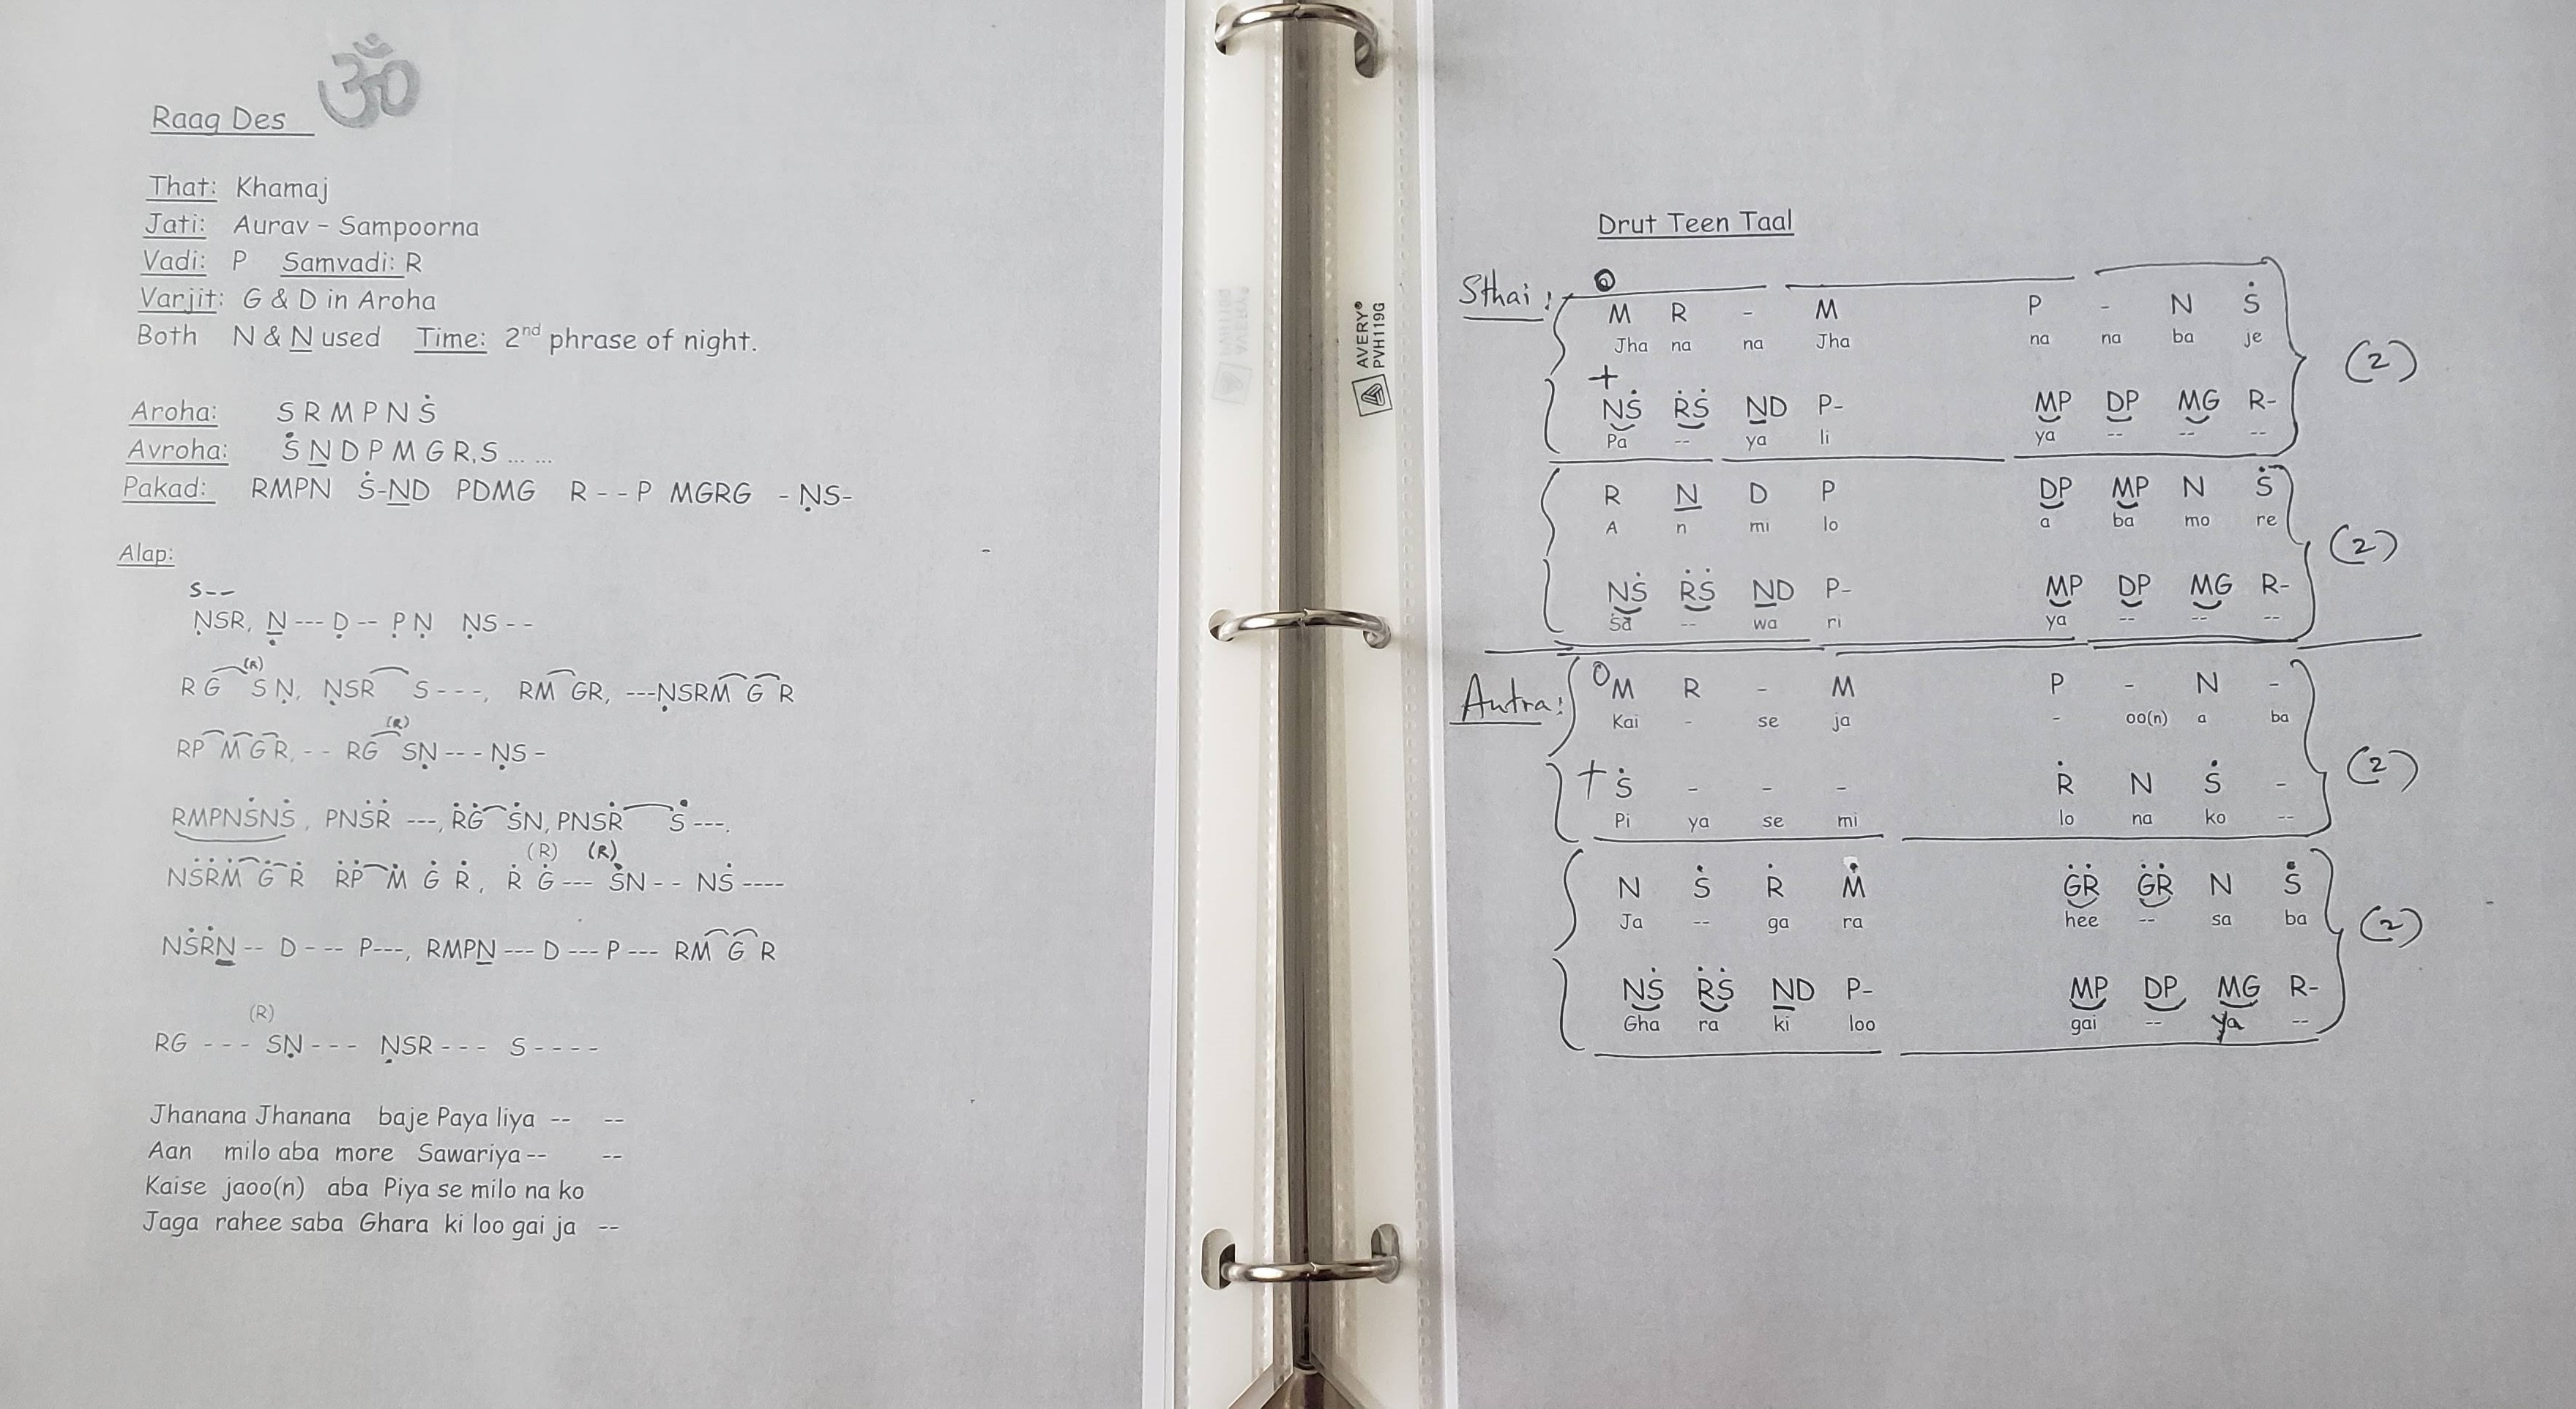 ॐ
Raag Des
That: Khamaj
Jati: Aurav - Sampoorna
Vadi: P Samvadi: R
Varjit: G & D in Aroha
Both N & N̲ used Time: 2nd phrase of night.
Aroha: S R M P N Ṡ
Avroha: Ṡ N̲ D P M G R,S ... ...
Pakad: RMPN Ṡ-N̲D PDMG R - - P MGRG - ṆS-
Alap:
S--
ṆSR, Ṇ̲ --- Ḍ -- P̣ Ṇ ṆS - -
(R)
R G͡ S Ṇ, ṆSR͡ S - - -, RM͡ GR, ---ṆSRM͡ G͡ R
(R)
RP͡ M͡ G͡ R, - - RG͡ SṆ - - - ṆS -
RMPNṠNṠ , PNṠṘ ---, ṘĠ͡ ṠN, PNSṘ͡ Ṡ ---.
(R) (R)
NṠṘṀ͡ Ġ͡ Ṙ ṘṖ͡ Ṁ Ġ Ṙ , Ṙ Ġ --- ṠN - - NṠ ----
NṠṘN̲ -- D - -- P---, RMPN̲ --- D --- P --- RM͡ G͡ R
(R)
RG - - - SṆ - - - ṆSR - - - S - - - -
Jhanana Jhanana baje Paya liya -- --
Aan milo aba more Sawariya -- --
Kaise jaoo(n) aba Piya se milo na ko
Jaga rahee saba Ghara ki loo gai ja --
AVERY®
PVH119G
Drut Teen Taal
Sthai: O
M R - M P - N Ṡ
Jha na na Jha na na ba je
(2)
+
NṠ ṘṠ N̲D P- MP DP MG R-
Pa -- ya li ya -- -- --
R N̲ D P DP MP N Ṡ
A n mi lo a ba mo re
(2)
NṠ ṘṠ N̲D P- MP DP MG R-
Sa -- wa ri ya -- -- --
Antra: O M R - M P - N -
Kai - se ja - oo(n) a ba
(2)
+ Ṡ - - - Ṙ N Ṡ -
Pi ya se mi lo na ko --
N Ṡ Ṙ Ṁ ĠṘ ĠṘ N Ṡ
Ja -- ga ra hee -- sa ba
(2)
NṠ ṘṠ N̲D P- MP DP MG R-
Gha ra ki loo gai -- ya --